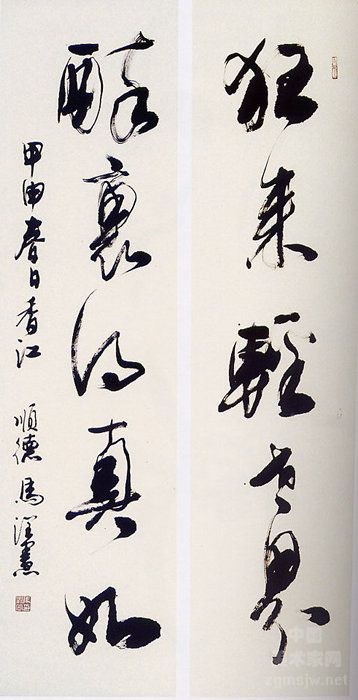 狂来輕世界
醉裏得真如
甲申春日香江 順德馬潤憲
中国
美术家网
zgmsjw.net